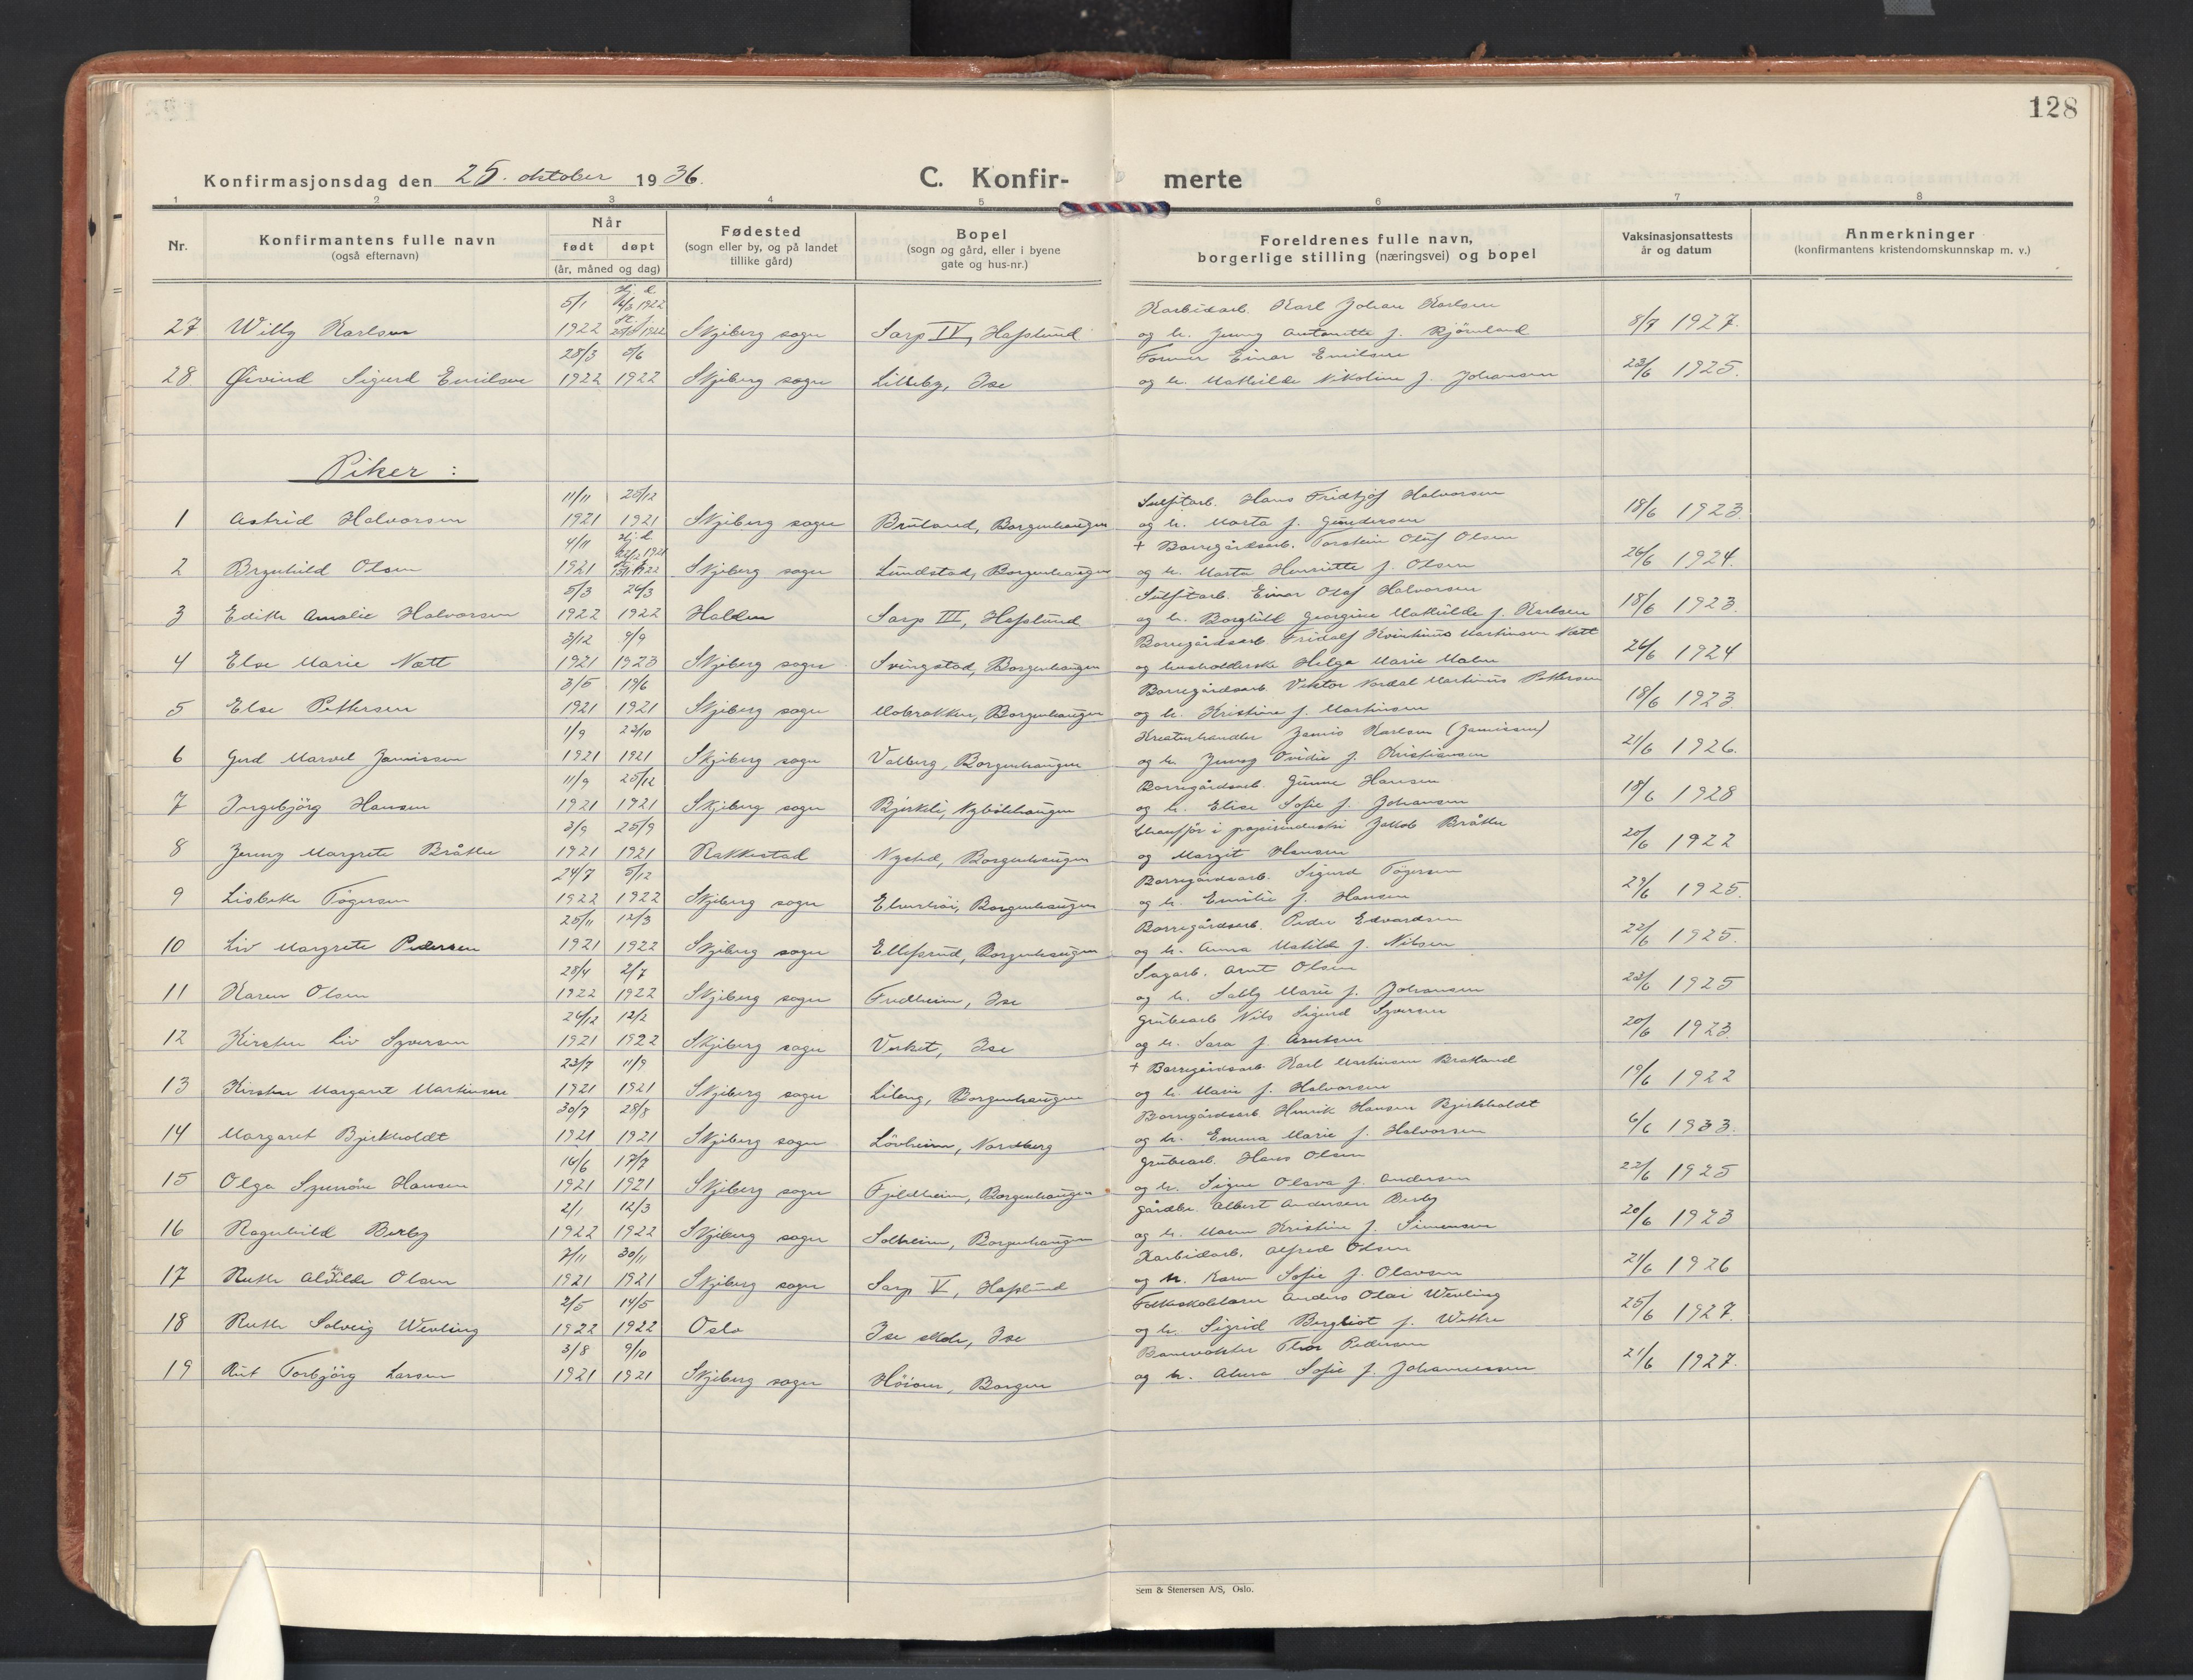 128
Konfirmasjonsdag den 25. oktober 1936.
C. Konfir- merte
1 2 3 4 5 6 7 8
Nr.
Konfirmantens fulle navn
(også efternavn)
Når
født døpt
(år, måned og dag)
Fødested
(sogn eller by, og på landet
tillike gård)
Bopel
(sogn og gård, eller i byene
gate og hus-nr.)
Foreldrenes fulle navn,
borgerlige stilling (næringsvei) og bopel
Vaksinasjonsattests
år og datum
Anmerkninger
(konfirmantens kristendomskunnskap m. v.)
5/1 Hj. d. 1922 Karbidarb. Karl Johan Karlsen
27 Willy Karlsen 1922 1922 Skjeberg sogn Sarp IV, Hafslund og h. Jenny Antonette f. Bjørnland 8/7 1927.
28/3 5/6 Former Einar Emilsen
28 Øivind Sigurd Emilsen 1922 1922 Skjeberg sogn Lilleby, Ise og h. Mathilde Nikoline f. Johansen 23/6 1925.
Piker :
11/11 25/12 Sulfitarb. Hans Fridtjof Halvorsen
1 Astrid Halvorsen 1921 1921 Skjeberg sogn Bruland, Borgenhaugen og h. Marta f. Gundersen 18/6 1923.
4/11 Hj. d. 1921 + Borregårdsarb. Torstein Oluf Olsen
2 Brynhild Olsen 1921 1922 Skjeberg sogn Lundstad, Borgenhaugen og h. Marta Henriette f. Olsen 26/6 1924.
5/3 26/3 Sulfitarb. Einar Olaf Halvorsen
3 Edith Amalie Halvorsen 1922 1922 Halden Sarp III, Hafslund og h. Borghild Georgine Mathilde f. Karlsen 18/6 1923.
3/12 9/9 Borregårdsarb. Fridolf Martinsen Nøtt
4 Else Marie Nøtt 1921 1923 Skjeberg sogn Svingstad, Borgenhaugen og husholderske Helga Marie Malm 26/6 1924
3/5 19/6 Borregårdsarb. Viktor Nordal Martinius Pettersen
5 Else Pettersen 1921 1921 Skjeberg sogn Mobakken, Borgenhaugen og h. Kristine f. Martinsen 18/6 1923.
1/9 23/10 Kreaturhandler Jamis Karlsen (Jamissen)
6 Gerd Marvel Jamissen 1921 1921 Skjeberg sogn Valberg, Borgenhaugen og h. Jenny Ovidie f. Kristiansen 21/6 1926.
11/9 25/12 Borregårdsarb. Gunne Hansen
7 Ingebjörg Hansen 1921 1921 Skjeberg sogn Bjerkeli, Nybölehaugen og h. Elise Sofie f. Johansen 18/6 1928
3/9 25/9 Chauffør i papirindustri Jakob Bråthe
8 Jenny Margrete Bråthe 1921 1921 Rakkestad Nysted, Borgenhaugen og Margit Hansen 20/6 1922
24/7 3/12 Borregårdsarb. Sigurd Tögersen
9 Lisbeth Tögersen 1922 1922 Skjeberg sogn Elvestöi, Borgenhaugen og h. Emilie f. Hansen 29/6 1925.
25/11 12/3 Borregårdsarb. Peder Edvardsen
10 Liv Margrete Pedersen 1921 1922 Skjeberg sogn Ellefsrud, Borgenhaugen og h. Anna Matilde f. Nilsen 22/6 1925.
28/4 2/7 Sagarb. Arnt Olsen
11 Karen Olsen 1922 1922 Skjeberg sogn Fredheim, Ise og h. Sally Marie f. Johansen 23/6 1925
26/12 12/2 Grubearb. Nils Sigurd Syversen
12 Kirsten Liv Syversen 1921 1922 Skjeberg sogn Verket, Ise og h. Sara f. Arntsen 20/6 1923.
23/7 11/9 + Borregårdsarb. Karl Martinsen Bratland
13 Kirsten Margaret Martinsen 1921 1921 Skjeberg sogn Lileng, Borgenhaugen og h. Marie f. Halvorsen 19/6 1922
30/7 28/8 Borregårdsarb Henrik Hansen Bjerkholdt
14 Margaret Bjerkholdt 1921 1921 Skjeberg sogn Lövheim, Nordberg og h. Emma Marie f. Halvorsen 6/6 1933.
16/6 17/7 Grubearb. Hans Olsen
15 Olga Synnöve Hansen 1921 1921 Skjeberg sogn Fjeldheim, Borgenhaugen og h. Signe Olava f. Andersen 22/6 1925
2/1 12/3 Gårdbr. Albert Andersen Berby
16 Ragnhild Berby 1922 1922 Skjeberg sogn Solheim, Borgenhaugen og h. Maren Kristine f. Simensen 20/6 1923
7/11 30/11 Karbidarb. Alfred Olsen
17 Ruth Alvilde Olsen 1921 1921 Skjeberg sogn Sarp V, Hafslund og h. Karen Sofie f. Olavsen 21/6 1926
2/5 14/5 Folkeskolelærer Anders Olai Wevling
18 Ruth Solveig Wevling 1922 1922 Oslo Ise skole, Ise og h. Sigrid Bergliot f. Wethre 25/6 1927.
3/8 9/10 Banevokter Thor Pedersen
19 Rut Torbjörg Larsen 1921 1921 Skjeberg sogn Höisen, Borgen og h. Alma Sofie f. Johannessen 21/6 1927.
Sem & Stenersen A/S, Oslo.